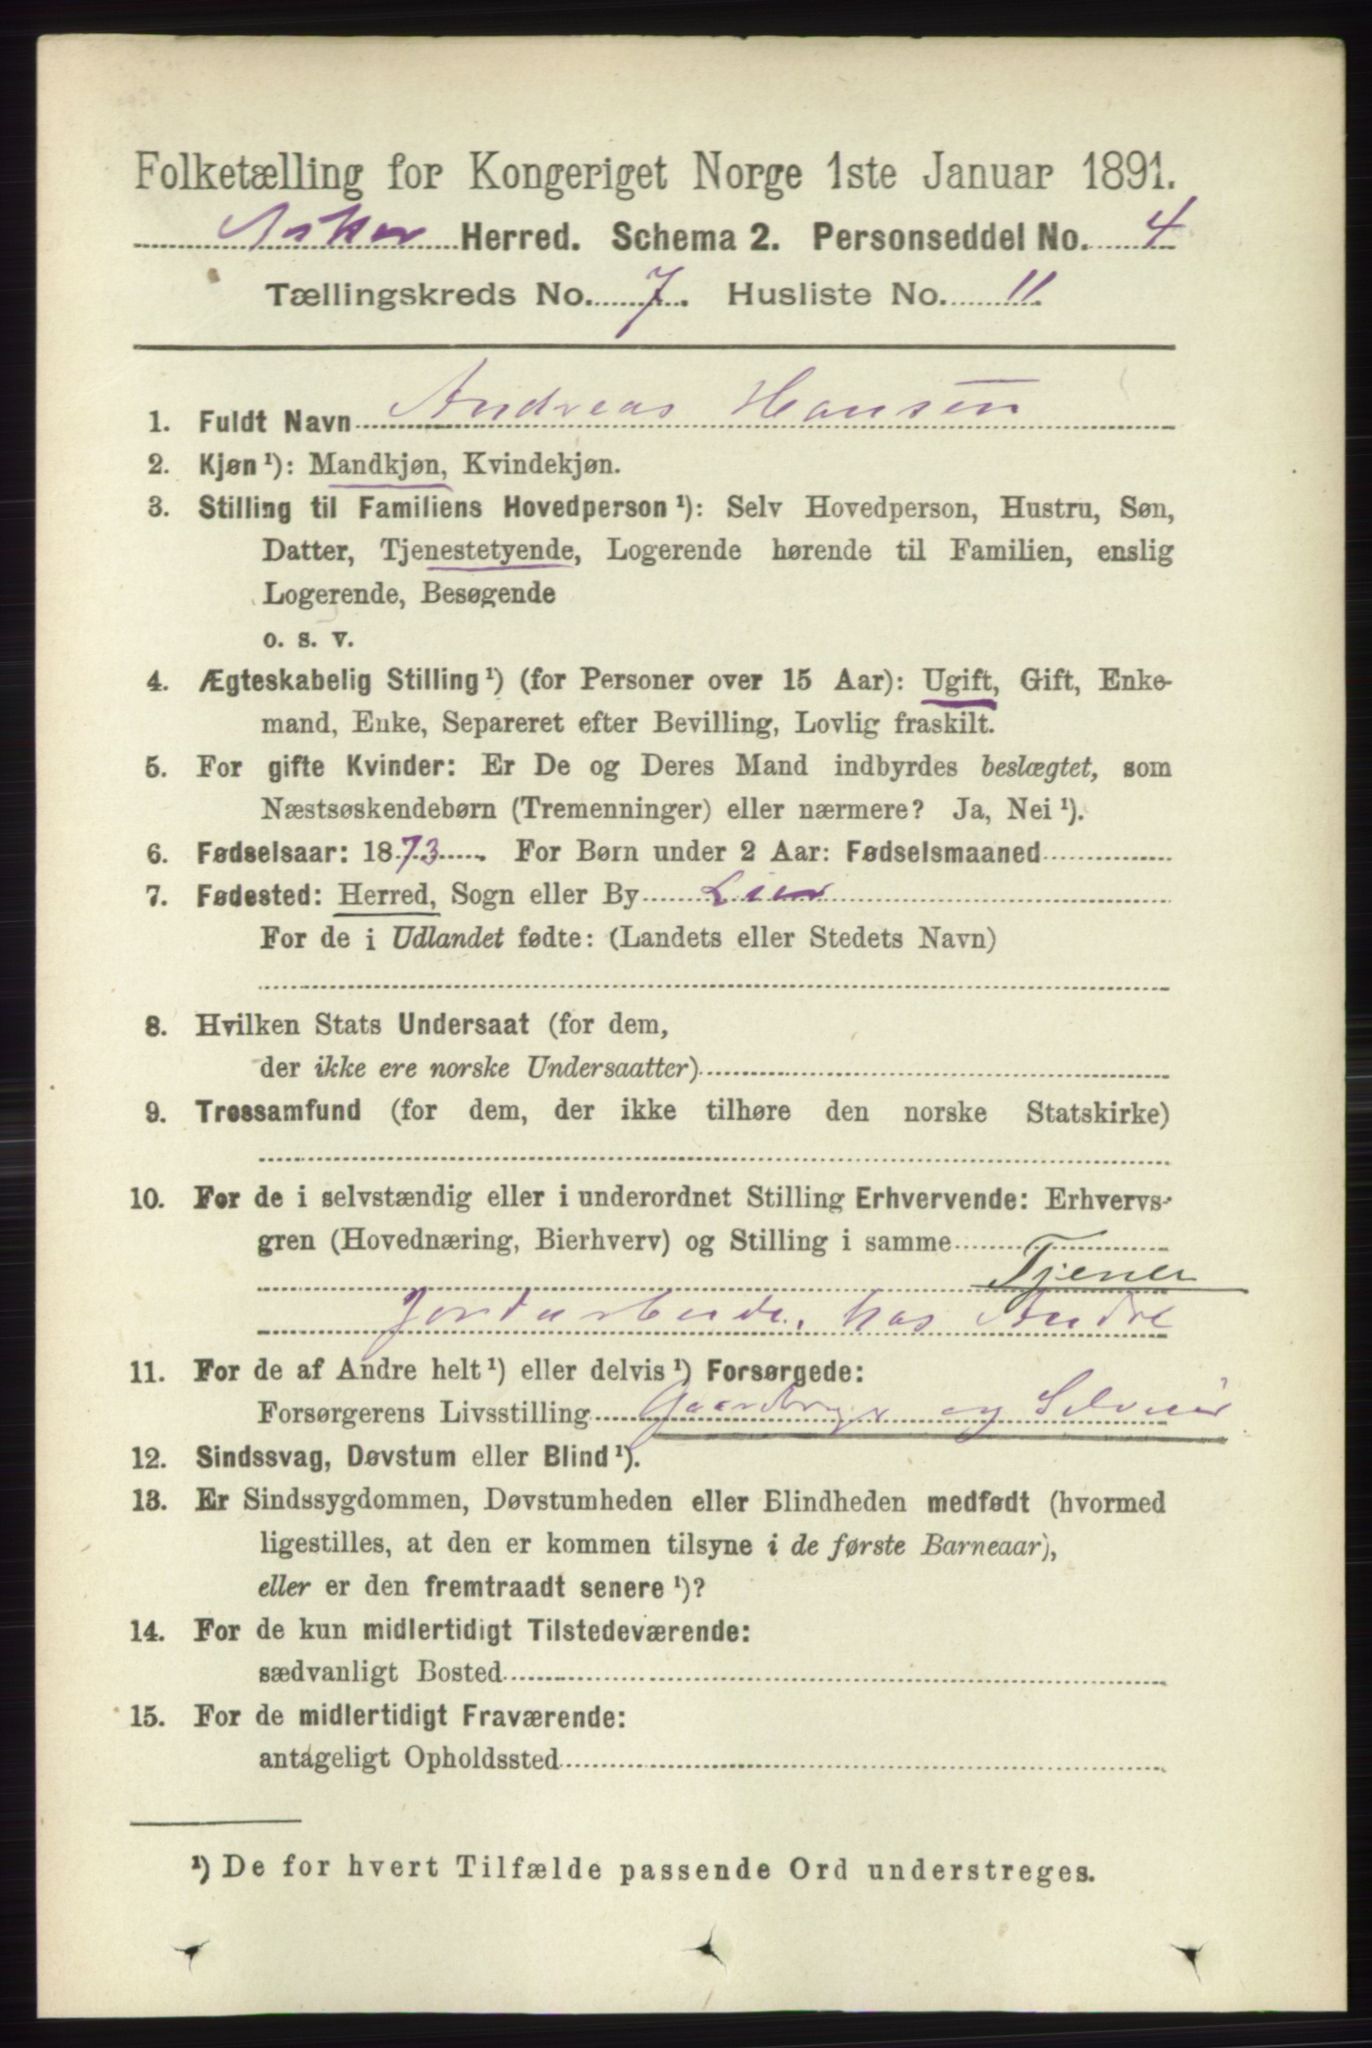 Folketælling for Kongeriget Norge 1ste Januar 1891.
Asker Herred. Schema 2. Personseddel No. 4
Tællingskreds No. 7. Husliste No. 11
1. Fuldt Navn Andreas Hansen
2. Kjøn ¹): Mandkjøn, Kvindekjøn.
3. Stilling til Familiens Hovedperson ¹): Selv Hovedperson, Hustru, Søn,
Datter, Tjenestetyende, Logerende hørende til Familien, enslig
Logerende, Besøgende
o. s. v.
4. Ægteskabelig Stilling ¹) (for Personer over 15 Aar): Ugift, Gift, Enke-
mand, Enke, Separeret efter Bevilling, Lovlig fraskilt.
5. For gifte Kvinder: Er De og Deres Mand indbyrdes beslægtet, som
Næstsøskendebørn (Tremenninger) eller nærmere? Ja, Nei ¹).
6. Fødselsaar: 1873. For Børn under 2 Aar: Fødselsmaaned
7. Fødested: Herred, Sogn eller By Lier
For de i Udlandet fødte: (Landets eller Stedets Navn)
8. Hvilken Stats Undersaat (for dem,
der ikke ere norske Undersaatter)
9. Trossamfund (for dem, der ikke tilhøre den norske Statskirke)
10. For de i selvstændig eller i underordnet Stilling Erhvervende: Erhvervs-
gren (Hovednæring, Bierhverv) og Stilling i samme
Tjener
Jordarbeide, hos Andre
11. For de af Andre helt ¹) eller delvis ¹) Forsørgede:
Forsørgerens Livsstilling Gaardbruger og Selveier
12. Sindssvag, Døvstum eller Blind ¹).
13. Er Sindssygdommen, Døvstumheden eller Blindheden medfødt (hvormed
ligestilles, at den er kommen tilsyne i de første Barneaar),
eller er den fremtraadt senere ¹)?
14. For de kun midlertidigt Tilstedeværende:
sædvanligt Bosted
15. For de midlertidigt Fraværende:
antageligt Opholdssted
¹) De for hvert Tilfælde passende Ord understreges.